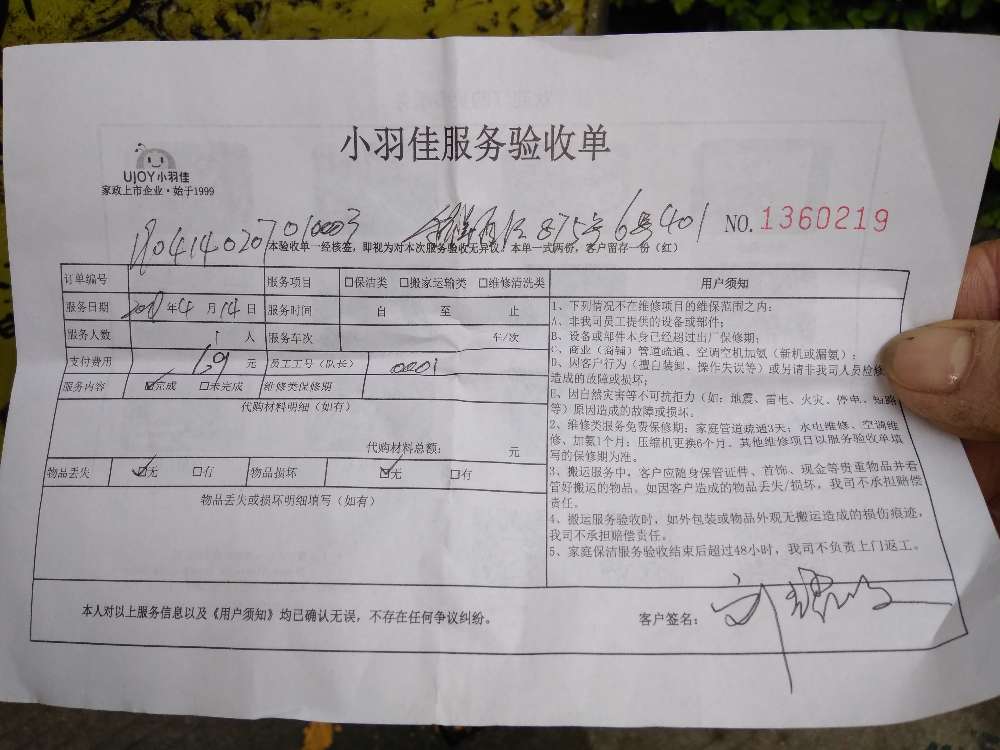 小羽佳服务验收单
UJOY小羽佳
家政上市企业·始于1999
875号6号401
NO.1360219
本验收单一经核签，即视为对本次服务验收无异议。本单一式两份，客户留存一份（红）
订单编号 服务项目 □保洁类 □搬家运输类 □维修清洗类
服务日期 年4月14日 服务时间 自 至 止
服务人数 1人 服务车次 车/次
支付费用 元 员工工号（队长） 0001
服务内容 ☑完成 □未完成 维修类保修期
代购材料明细（如有）
代购材料总额： 元
物品丢失 ☑无 □有 物品损坏 ☑无 □有
物品丢失或损坏明细填写（如有）
用户须知
1、下列情况不在维修项目的维保范围之内：
A、非我司员工提供的设备或部件；
B、设备或部件本身已经超过出厂保修期；
C、商业（商铺）管道疏通、空调空机加氨（新机或漏氨）；
D、因客户行为（擅自装卸、操作失误等）或另请非我司人员检修
造成的故障或损坏；
E、因自然灾害等不可抗拒力（如：地震、雷电、火灾、停电、短路
等）原因造成的故障或损坏。
2、维修类服务免费保修期：家庭管道疏通3天；水电维修、空调维
修、加氨1个月；压缩机更换6个月。其他维修项目以服务验收单填
写的保修期为准。
3、搬运服务中，客户应随身保管证件、首饰、现金等贵重物品并看
管好搬运的物品。如因客户造成的物品丢失/损坏，我司不承担赔偿
责任。
4、搬运服务验收时，如外包装或物品外观无搬运造成的损伤痕迹，
我司不承担赔偿责任。
5、家庭保洁服务验收结束后超过48小时，我司不负责上门返工。
本人对以上服务信息以及《用户须知》均已确认无误，不存在任何争议纠纷。
客户签名：